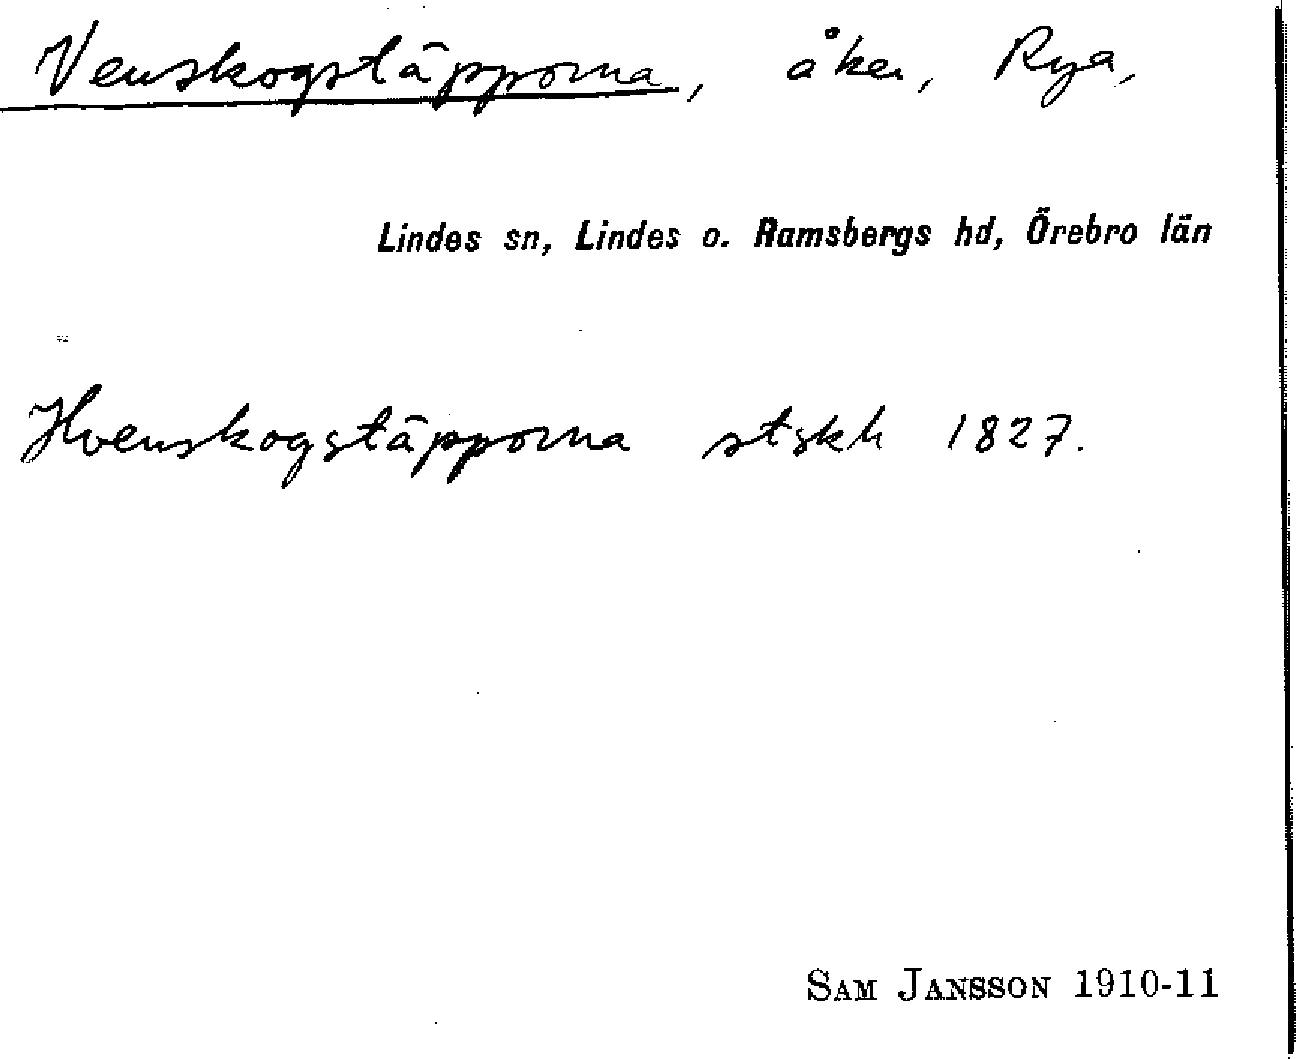 Venskogstäpporna, åker, Rya,
Lindes sn, Lindes o. Ramsbergs hd, Örebro län
Hvenskogstäpporna stskh 1827.
SAM JANSSON 1910-11